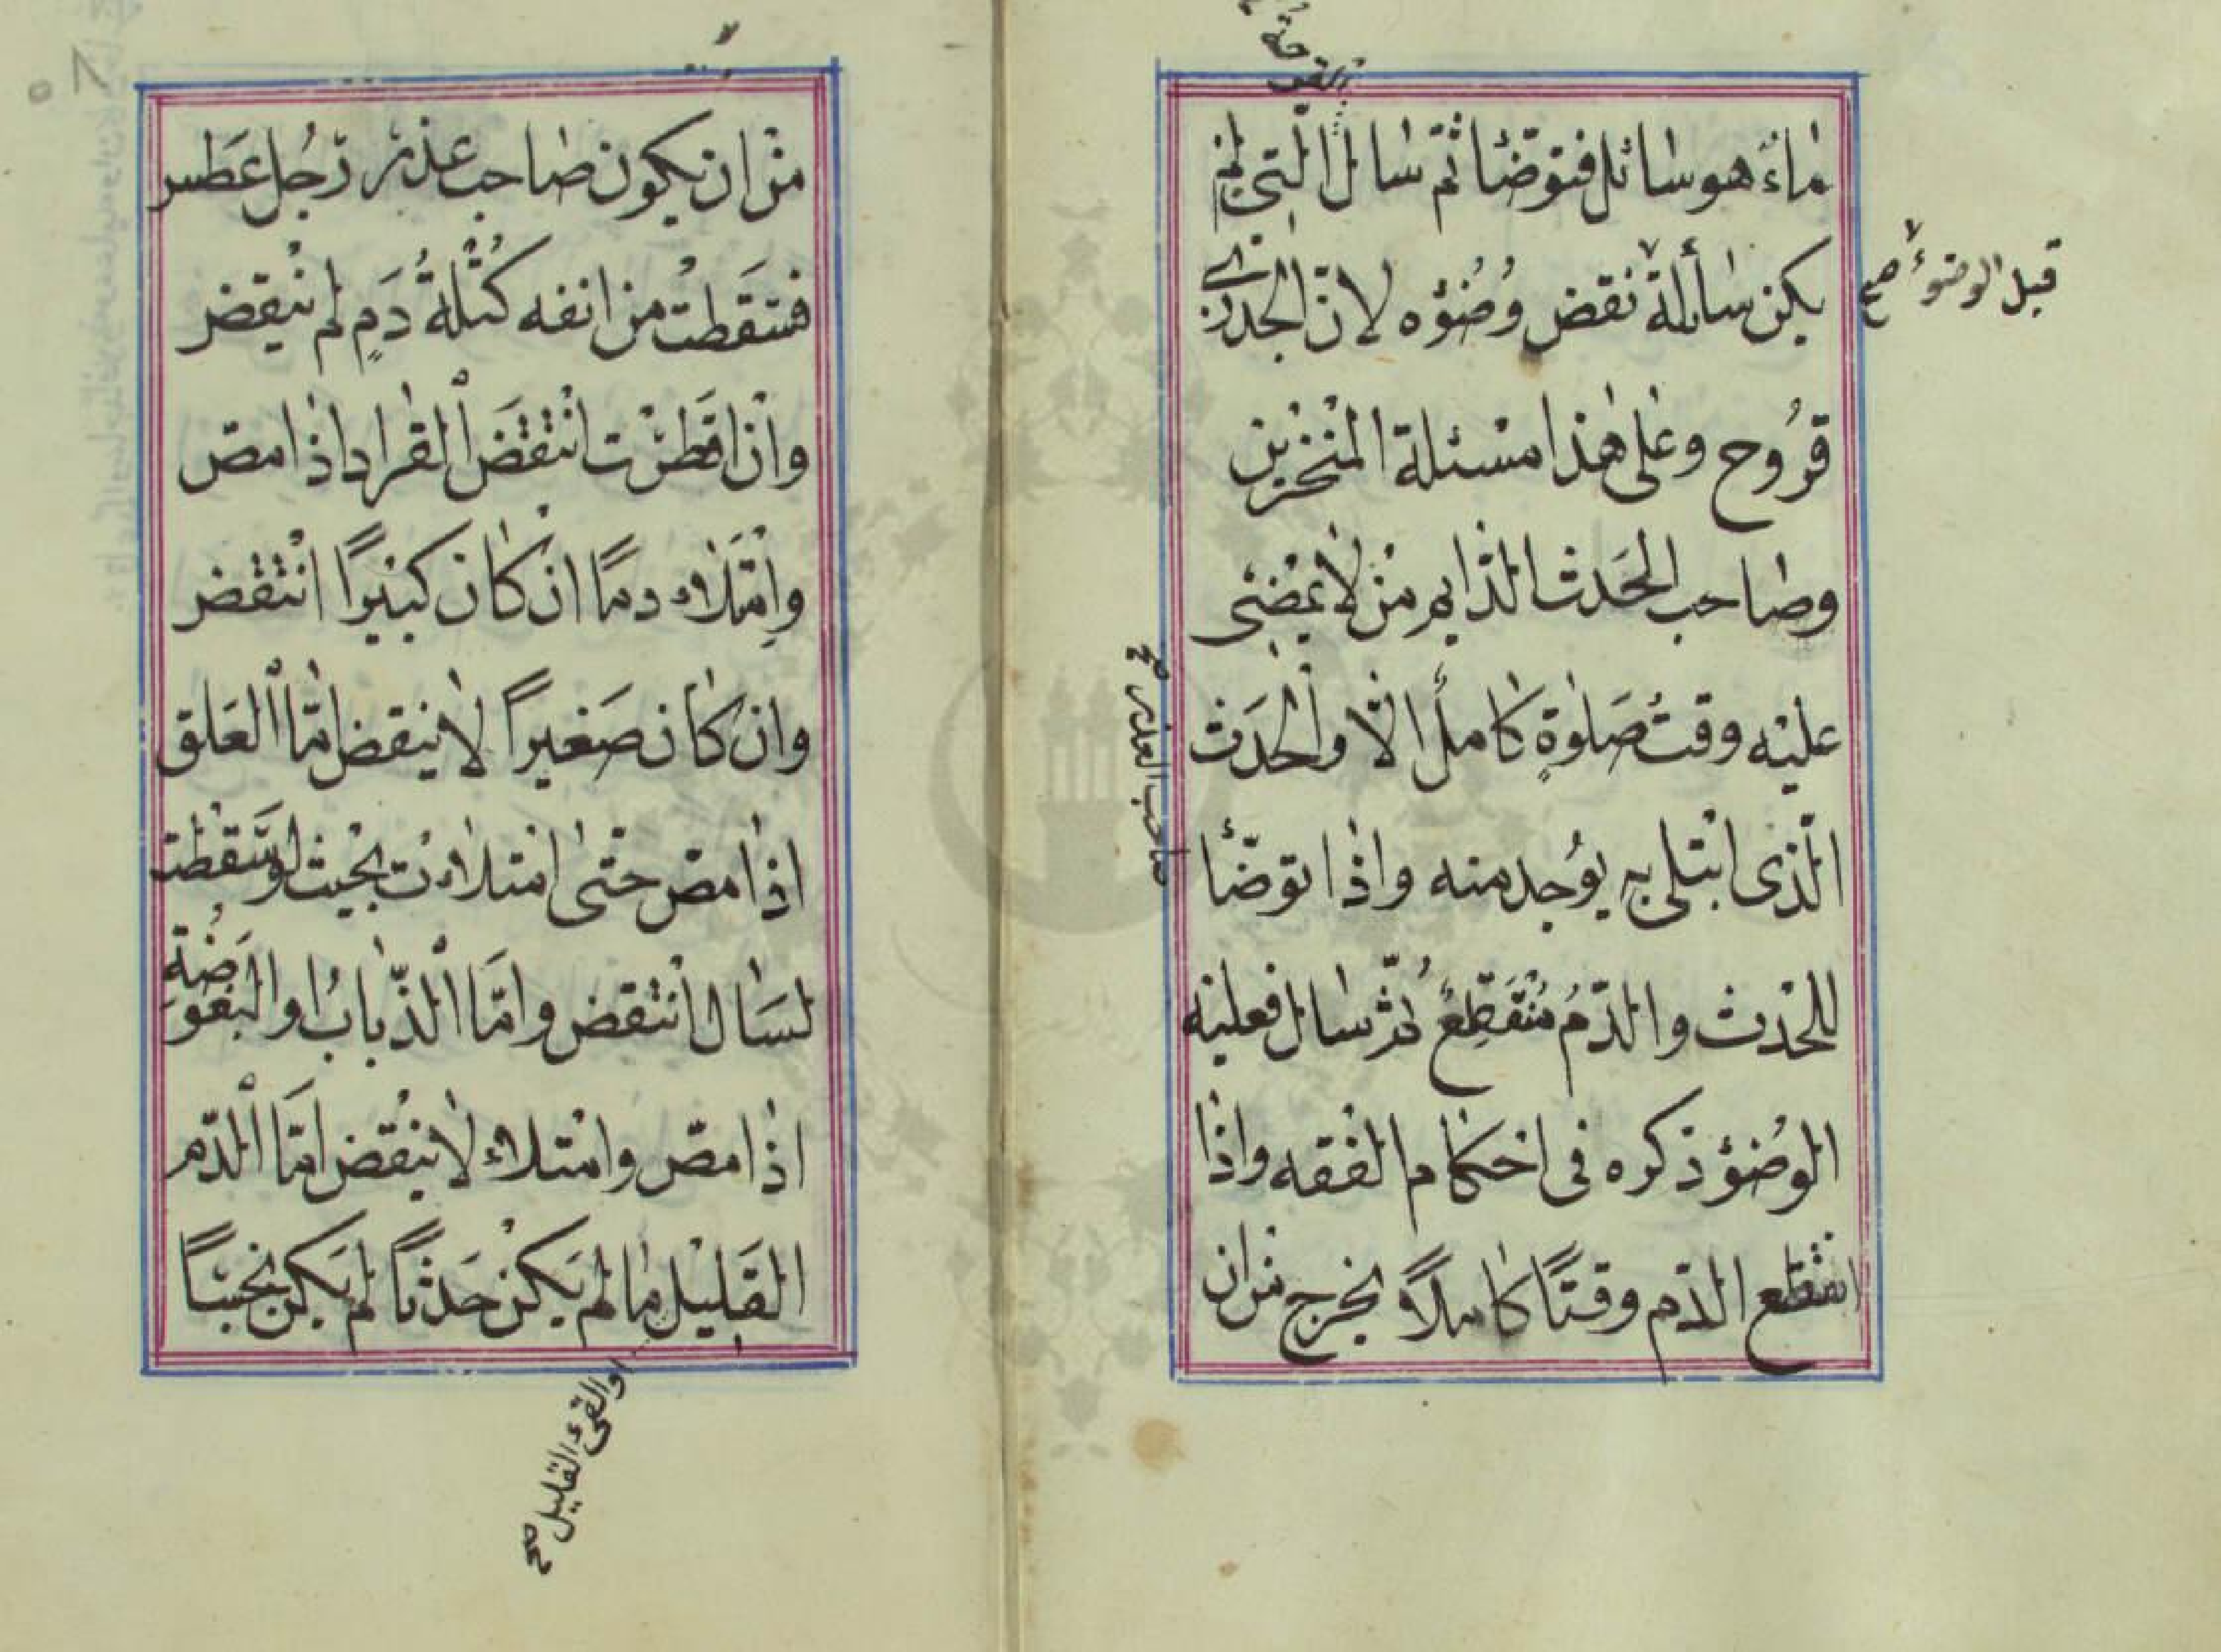 القرحة
ماء هو سائل فتوضا ثم سال التى لم
يكن سائلة نقض وُضُؤه لانّ الجدرى
قبل الوضوء صح
قرُوح وعلى هذا مسئلة المنخزين
وصاحب الحَدث الدّايم من لا يمضى
عليْه وقتُ صَلوٰةٍ كامل الّا والحَدَث
صاحب العذر صح
الّذى ابْتلى به يُوجد منه واذا توضّأ
للحْدث والدّمُ مُنْقَطِعٌ ثمّ سال فعليْه
الوُضؤ ذكره فى احْكام الفقه واذا
انْقطع الدّم وقتًا كاملاً يخرج من ان
من ان يكون صاحب عذر رَجُل عَطس
فسَقطت من انفه كُتْلةُ دَمٍ لم ينْقض
وان قَطرَت انْتقَضَ القراد اذا مصّ
وامْتَلاء دمًا ان كان كبيرًا انْتقض
وان كان صَغيراً لا ينقض امّا العَلق
اذا مصّ حتّى امْتلاءت بحيْث لو سَقطت
لسَال انْتقض وامّا الذّبابُ او البَعوضَة
اذا مصّ وامْتلاء لا ينْقض امّا الدّم
القَليْل ما لم يَكنْ حَدثًا لم يَكن نجسًا
والقىء القليل صح